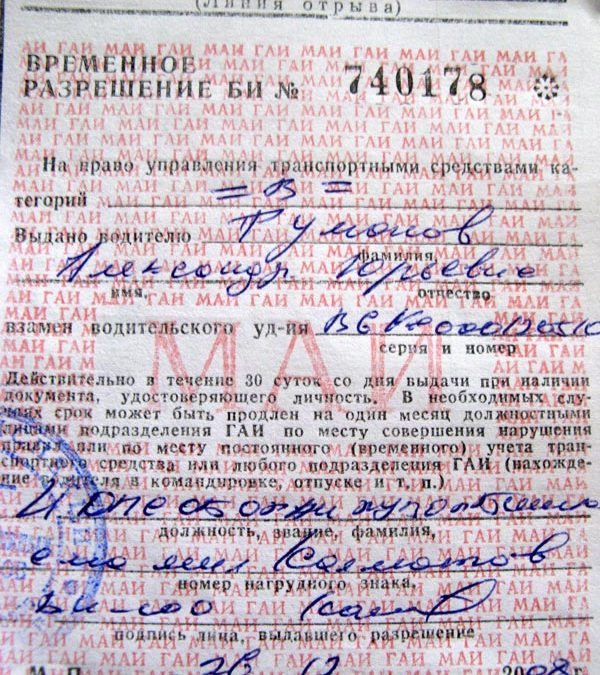 (Линия отрыва)
ВРЕМЕННОЕ
РАЗРЕШЕНИЕ БИ № 740178
На право управления транспортными средствами ка-
тегорий = В =
Выдано водителю Румонов
фамилия,
Александр Юрьевич
имя, отчество
взамен водительского уд-ия
серия и номер
МАИ
Действительно в течение 30 суток со дня выдачи при наличии
документа, удостоверяющего личность. В необходимых слу-
чаях срок может быть продлен на один месяц должностными
лицами подразделения ГАИ по месту совершения нарушения
правил или по месту постоянного (временного) учета тран-
спортного средства или любого подразделения ГАИ (нахожде-
ние водителя в командировке, отпуске и т. п.)
должность, звание, фамилия,
номер нагрудного знака,
подпись лица, выдавшего разрешение
М. П. 26 12 2008 г.